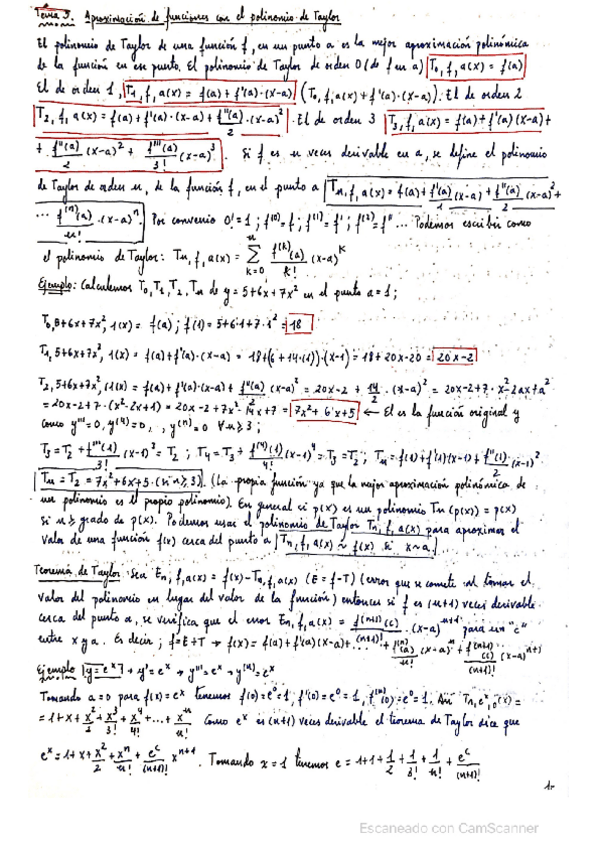 Tema 3. Aproximación de funciones con el polinomio de Taylor
El polinomio de Taylor de una función f, en un punto a es la mejor aproximación polinómica
de la función en ese punto. El polinomio de Taylor de orden 0 (de f en a) T₀,f,a(x) = f(a)
El de orden 1, T₁,f,a(x) = f(a)+f'(a)·(x-a) (T₀,f,a(x)+f'(a)·(x-a)). El de orden 2
T₂,f,a(x) = f(a)+f'(a)·(x-a)+f''(a)/2·(x-a)². El de orden 3 T₃,f,a(x) = f(a)+f'(a)(x-a)+
+ f''(a)/2 (x-a)² + f'''(a)/3! (x-a)³. Si f es n veces derivable en a, se define el polinomio
de Taylor de orden n, de la función f, en el punto a Tn,f,a(x) = f(a)+f'(a)/1 (x-a)+f''(a)/2 (x-a)²+
... f⁽ⁿ⁾(a)/n! ·(x-a)ⁿ. Por convenio 0!=1; f⁽⁰⁾=f; f⁽¹⁾=f'; f⁽²⁾=f'' ... Podemos escribir como
el polinomio de Taylor: Tn,f,a(x) = Σ k=0 n f⁽ᵏ⁾(a)/k! (x-a)ᵏ
Ejemplo: Calculemos T₀,T₁,T₂,Tn de y=5+6x+7x² en el punto a=1;
T₀,5+6x+7x²,1(x) = f(a); f(1)=5+6·1+7·1²= 18
T₁,5+6x+7x²,1(x) = f(a)+f'(a)·(x-a) = 18+(6+14·(1))·(x-1) = 18+20x-20 = 20x-2
T₂,5+6x+7x²,1(x) = f(a)+f'(a)·(x-a)+f''(a)/2 (x-a)² = 20x-2+14/2·(x-a)² = 20x-2+7·x²-2ax+a²
= 20x-2+7·(x²-2x+1) = 20x-2+7x²-14x+7 = 7x²+6x+5 ← El es la función original y
como y'''=0, y⁽⁴⁾=0, , y⁽ⁿ⁾=0 ∀n≥3;
T₃=T₂+f'''(1)/3! (x-1)³=T₂; T₄=T₃+f⁽⁴⁾(1)/4! (x-1)⁴=T₃=T₂; Tn=f(1)+f'(1)(x-1)+f''(1)/2 (x-1)²
Tn=T₂=7x²+6x+5 (si n≥3). (La propia función ya que la mejor aproximación polinómica de
un polinomio es el propio polinomio). En general si p(x) es un polinomio Tn(p(x))=p(x)
si n≥grado de p(x). Podemos usar el polinomio de Taylor Tn,f,a(x) para aproximar el
valor de una función f(x) cerca del punto a Tn,f,a(x) ~ f(x) si x~a.
Teorema de Taylor. Sea En,f,a(x) = f(x)-Tn,f,a(x) (E=f-T) (error que se comete al tomar el
valor del polinomio en lugar del valor de la función) entonces si f es (n+1) veces derivable
cerca del punto a, se verifica que el error En,f,a(x) = f⁽ⁿ⁺¹⁾(c)/(n+1)! ·(x-a)ⁿ⁺¹ para un "c"
entre x y a. Es decir; f=E+T → f(x)=f(a)+f'(a)(x-a)+...+f⁽ⁿ⁾(a)/n! (x-a)ⁿ+f⁽ⁿ⁺¹⁾(c)/(n+1)! (x-a)ⁿ⁺¹
Ejemplo y=eˣ → y'=eˣ → y''=eˣ → y⁽ⁿ⁾=eˣ
Tomando a=0 para f(x)=eˣ tenemos f(0)=e⁰=1, f'(0)=e⁰=1, f⁽ⁿ⁾(0)=e⁰=1. Así Tn,eˣ,0(x)=
=1+x+x²/2+x³/3!+x⁴/4!+...+xⁿ/n! Como eˣ es (n+1) veces derivable el teorema de Taylor dice que
eˣ=1+x+x²/2+xⁿ/n!+eᶜ/(n+1)! xⁿ⁺¹. Tomando x=1 tenemos e=1+1+1/2+1/3!+1/n!+eᶜ/(n+1)!
1-
Escaneado con CamScanner